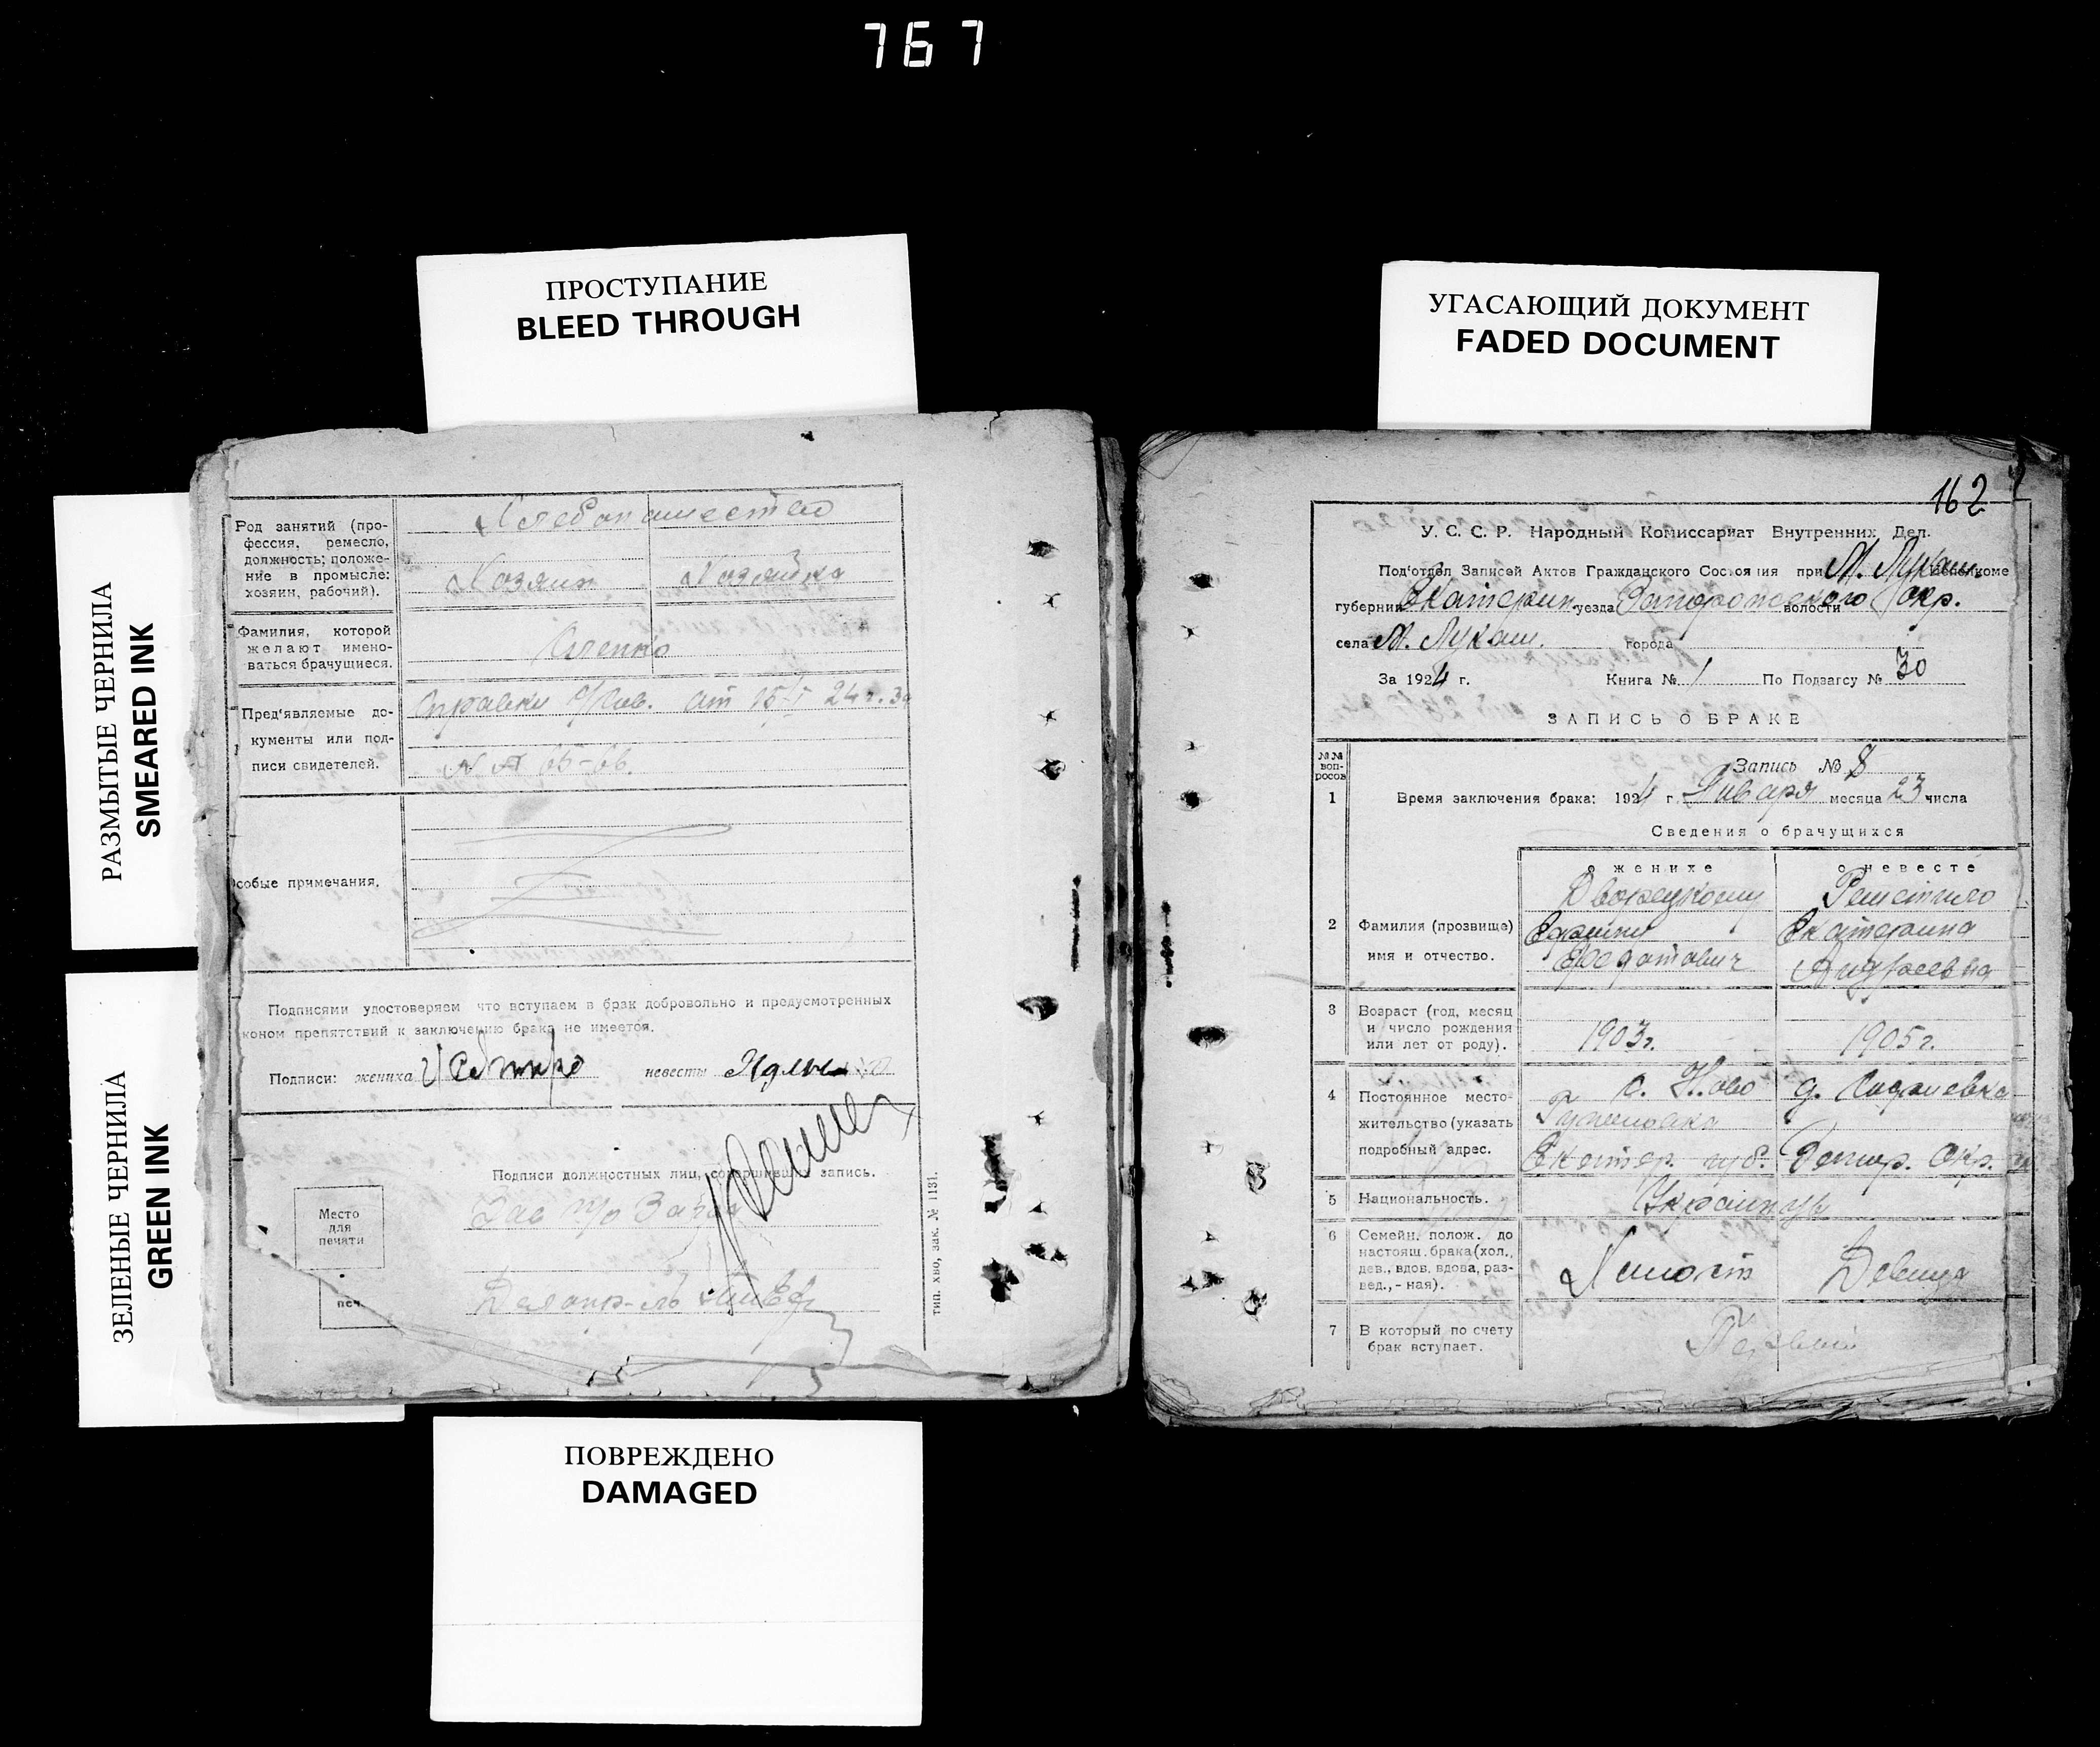 767
ПРОСТУПАНИЕ
BLEED THROUGH
УГАСАЮЩИЙ ДОКУМЕНТ
FADED DOCUMENT
РАЗМЫТЫЕ ЧЕРНИЛА
SMEARED INK
ЗЕЛЕНЫЕ ЧЕРНИЛА
GREEN INK
Хлебопашество
Род занятий (про-
фессия, ремесло,
должность; положе-
ние в промысле:
хозяин, рабочий).
Хозяин Хозяйка
Фамилия, которой
желают имено-
ваться брачущиеся.
Пред'являемые до-
кументы или под-
писи свидетелей.
Справки от 15/I 24 г.
собые примечания.
Подписями удостоверяем что вступаем в брак добровольно и предусмотренных
коном препятствий к заключению брака не имеется.
Подписи: жениха невесты
Подписи должностных лиц, совершивших запись.
Место
для
печати
печ.
тип. хво, зак. № 1131.
ПОВРЕЖДЕНО
DAMAGED
162
У. С. С. Р. Народный Комиссариат Внутренних Дел.
Под'отдел Записей Актов Гражданского Состояния при М. Лукаш. Исполкоме
губернии Екатерин. уезда Запорожского волости окр.
села М. Лукаш. города
За 1924 г. Книга № 1 По Подзагсу № 30
ЗАПИСЬ О БРАКЕ
№№ воп-
росов
Запись № 8
1 Время заключения брака: 1924 г. Января месяца 23 числа
Сведения о брачущихся
о женихе о невесте
Дворецкому
2 Фамилия (прозвище) Екатерина
имя и отчество. Федотович Андреевна
3 Возраст (год, месяц
и число рождения
или лет от роду). 1903 г. 1905 г.
4 Постоянное место- с. Ново д.
жительство (указать
подробный адрес. Екатер. губ. Запор. Окр.
5 Национальность. Украинцы
6 Семейн. полож. до
настоящ. брака (хол.,
дев., вдов, вдова, раз-
вед., - ная). Холост Девица
7 В который по счету
брак вступает. Первый